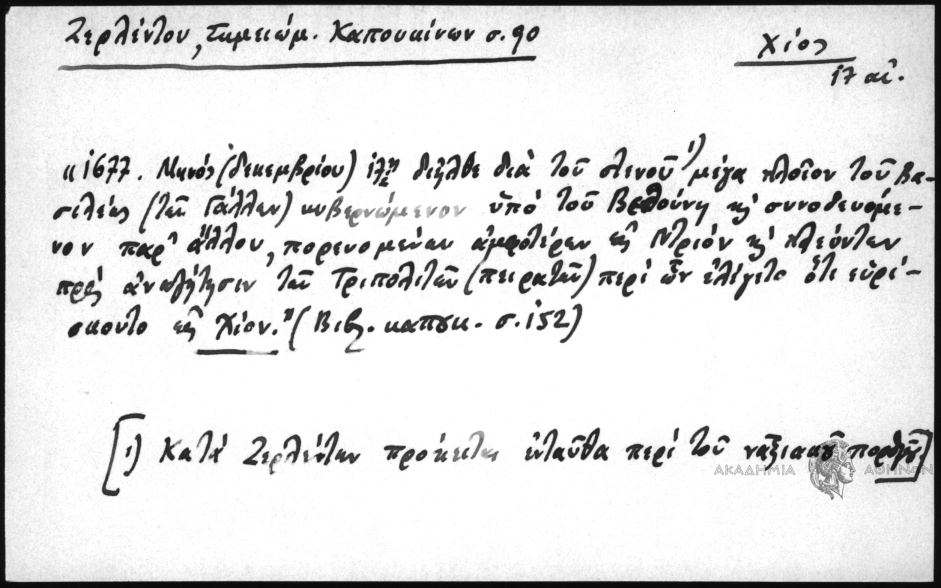 Ζερλέντου, Σημειώμ. Καπουκίνων σ. 90
Χίος
17 αἰ.
«1677. Μηνός (δεκεμβρίου) διῆλθε διά τοῦ στενοῦ 1) μέγα πλοῖον τοῦ Βα-
σιλέως (τῶν Γάλλων) κυβερνώμενον ὑπό τοῦ Βεθούνη κ συνοδευόμε-
νον παρ' ἄλλου, πορευομένων ἀμφοτέρων εἰς Ντριόν κ πλεόντων
πρός ἀναζήτησιν τῶν Τριπολιτῶν (πειρατῶν) περί ὧν ἐλέγετο ὅτι εὑρί-
σκοντο εἰς Χίον." (Βιβλ. καπουκ. σ. 152)
[1) Κατά Ζερλέντην πρόκειται ἐνταῦθα περί τοῦ ναξιακοῦ πορθμοῦ]
ΑΚΑΔΗΜΙΑ ΑΘΗΝΩΝ